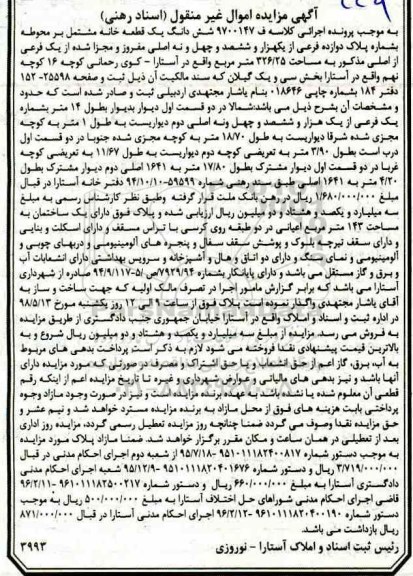 آگهی مزایده اموال غیر منقول (اسناد رهنی)
به موجب پرونده اجرائی کلاسه ف ۹۷۰۰۱۴۷ شش دانگ یک قطعه خانه مشتمل بر محوطه
بشماره پلاک دوازده فرعی از یکهزار و ششصد و چهل و نه اصلی مفروز و مجزا شده از یک فرعی
از اصلی مذکور به مساحت ۳۲۶/۲۵ متر مربع واقع در آستارا - کوی رحمانی کوچه ۱۶ کوچه
نهم واقع در آستارا بخش سی و یک گیلان که سند مالکیت آن ذیل ثبت و صفحه ۲۵۵۹۸- ۱۵۲
دفتر ۱۸۴ بشماره چاپی ۰۱۸۶۴۶ بنام یاشار مجتهدی اردبیلی ثبت و صادر شده است که حدود
و مشخصات آن بشرح ذیل می باشد:شمالا در دو قسمت اول دیوار بدیوار بطول ۱۴ متر بشماره
یک فرعی از یک هزار و ششصد و چهل ونه اصلی دوم دیواریست به طول ۱ متر به کوچه
مجزی شده شرقا دیواریست به طول ۱۸/۷۰ متر به کوچه مجزی شده جنوبا در دو قسمت اول
درب است بطول ۳/۹۰ متر به تعریضی کوچه دوم دیواریست به طول ۱۱/۶۷ به تعریضی کوچه
غربا در دو قسمت اول دیوار مشترک بطول ۱۷/۸۰ متر به ۱۶۴۱ اصلی دوم دیوار مشترک بطول
۴/۲۰ متر به ۱۶۴۱ اصلی طبق سند رهنی شماره ۵۹۵۹۹-۹۴/۱۰/۱۰ دفتر خانه آستارا در قبال
مبلغ ۱/۶۸۰/۰۰۰/۰۰۰ ریال در رهن بانک ملت قرار گرفته وطبق نظر کارشناس رسمی به مبلغ
سه میلیارد و یکصد و هشتاد و دو میلیون ریال ارزیابی شده و پلاک فوق دارای یک ساختمان به
مساحت ۱۴۳ متر مربع اعیانی در دو طبقه روی کرسی با تراس مسقف و دارای اسکلت و بنایی
و دارای سقف تیرچه بلوک و پوشش سقف سفال و پنجره های آلومینیومی و دربهای چوبی و
آلومینیومی و نمای سنگ و دارای دو اتاق و هال و آشپزخانه و سرویس بهداشتی دارای انشعابات آب
و برق و گاز مستقل می باشد و دارای پایانکار بشماره ۷۹۲۹/۹۴/ص/۵-۹۴/۹/۱۱۷ صادره از شهرداری
آستارا می باشد که برابر گزارش مامور اجرا در تصرف مالک اولیه که جهت ساخت و ساز به
آقای یاشار مجتهدی واگذار نموده است پلاک فوق از ساعت ۹ الی ۱۲ روز یکشنبه مورخ ۹۸/۵/۱۳
در اداره ثبت و اسناد و املاک واقع در آستارا خیابان جمهوری جنب دادگستری از طریق مزایده
به فروش می رسد. مزایده از مبلغ سه میلیارد و یکصد و هشتاد و دو میلیون ریال شروع و به
بالاترین قیمت پیشنهادی نقدا فروخته می شود لازم به ذکر است پرداخت بدهی های مربوط
به آب، برق، گاز اعم از حق انشعاب و یا حق اشتراک و مصرف در صورتی که مورد مزایده دارای
آنها باشد و نیز بدهی های مالیاتی و عوارض شهرداری و غیره تا تاریخ مزایده اعم از اینکه رقم
قطعی آن معلوم شده یا نشده باشد به عهده برنده مزایده است و نیز در صورت وجود مازاد وجوه
پرداختی بابت هزینه های فوق از محل مازاد به برنده مزایده مسترد خواهد شد و نیم عشر و
حق مزایده نقدا وصول می گردد ضمنا چنانچه روز مزایده تعطیل رسمی گردد، مزایده روز اداری
بعد از تعطیلی در همان ساعت و مکان مقرر برگزار خواهد شد. ضمنا مازاد پلاک مورد مزایده
به موجب دستور شماره ۹۵۱۰۱۱۱۸۲۴۰۰۸۱۷ -۹۵/۷/۱۸ از شعبه دوم اجرای احکام مدنی در قبال
۳/۷۱۹/۰۰۰/۰۰۰ ریال و دستور شماره ۹۵۱۰۱۱۱۸۲۰۴۰۱۶۷۶ -۹۵/۱۲/۹ شعبه اجرای احکام مدنی
دادگستری آستارا به مبلغ ۶۶۰/۰۰۰/۰۰۰ ریال و دستور شماره ۹۶۱۰۱۱۱۸۲۵۰۰۲۱۷ -۹۶/۲/۱۱
قاضی اجرای احکام مدنی شوراهای حل اختلاف آستارا به مبلغ ۵۰۰/۰۰۰/۰۰۰ ریال به موجب
دستور شماره ۹۶۱۰۱۱۱۸۲۰۴۰۰۱۹۰ -۹۶/۲/۱۲ اجرای احکام مدنی آستارا در قبال ۸۷۱/۰۰۰/۰۰۰
ریال بازداشت می باشد.
رئیس ثبت اسناد و املاک آستارا - نوروزی ۳۹۹۳